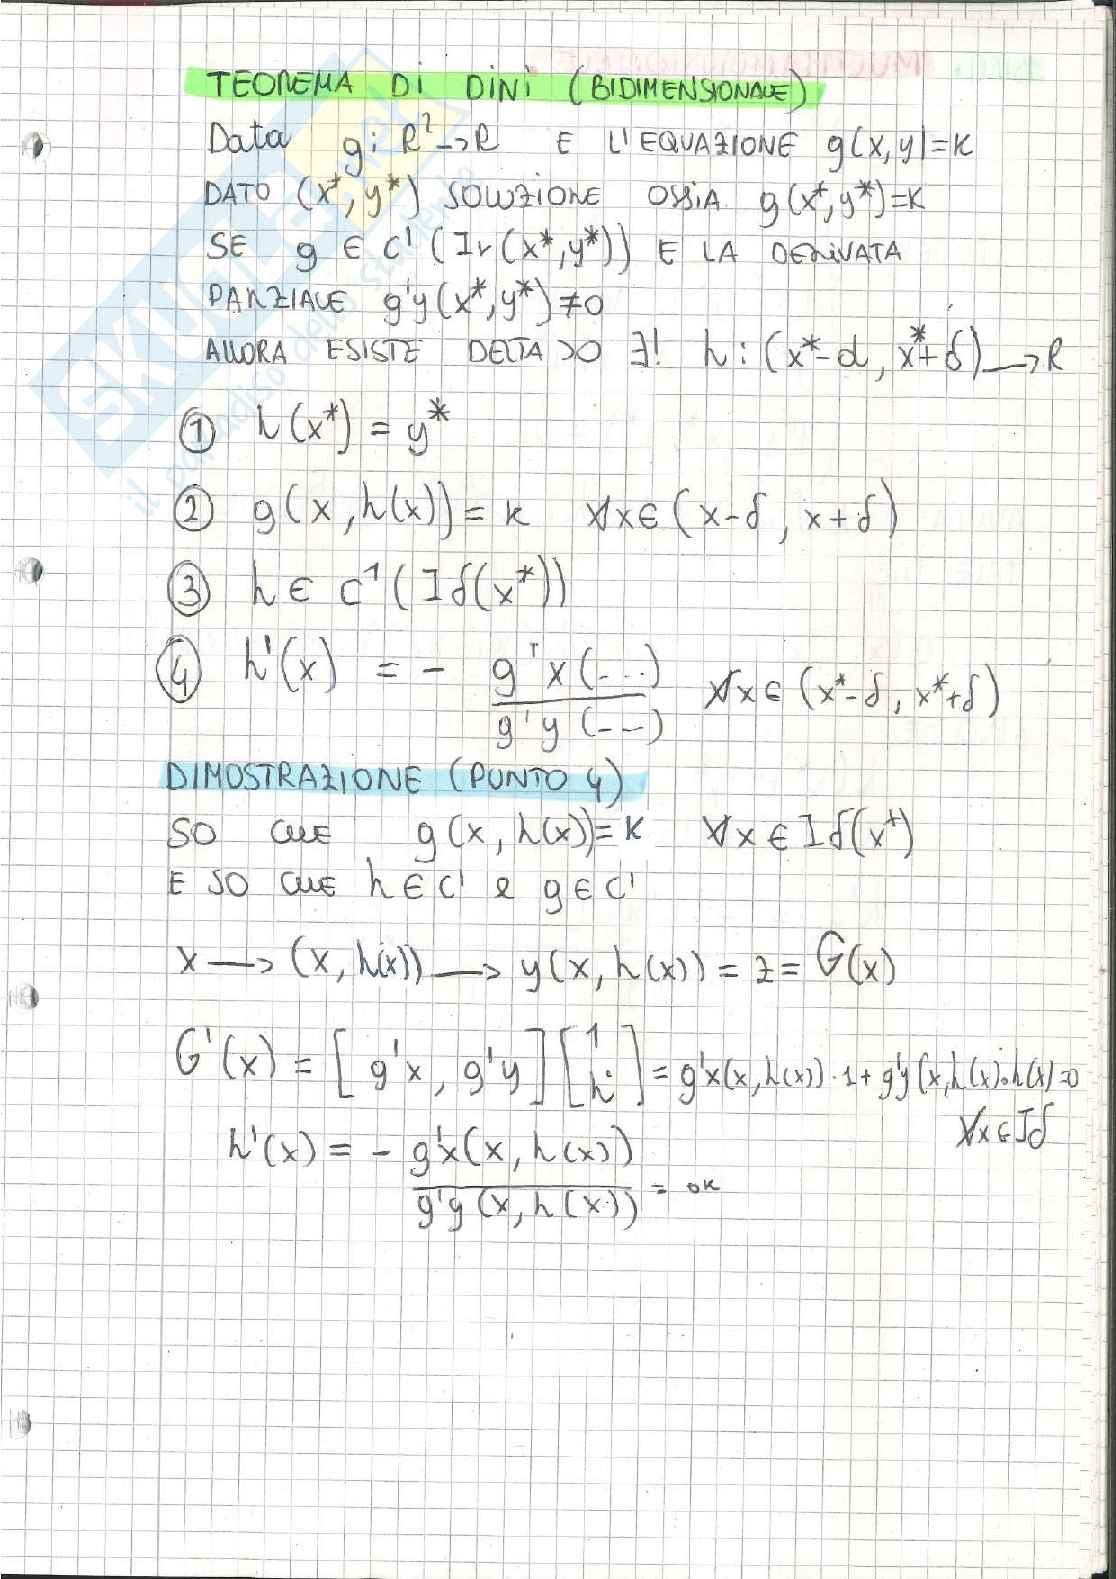 TEOREMA DI DINI (BIDIMENSIONALE)
Data g: R² → R E L'EQUAZIONE g(x,y)=K
DATO (x*,y*) SOLUZIONE OSSIA g(x*,y*)=K
SE g ∈ C¹ (Ir(x*,y*)) E LA DERIVATA
PARZIALE g'y(x*,y*)≠0
ALLORA ESISTE DELTA >0 ∃! h: (x*-d, x*+δ) → R
① h(x*) = y*
② g(x,h(x)) = k ∀x∈(x-δ, x+δ)
③ h ∈ C¹(Iδ(x*))
④ h'(x) = - g'x(...) / g'y(---) ∀x∈(x*-δ, x*+δ)
DIMOSTRAZIONE (PUNTO 4)
SO CHE g(x,h(x))=K ∀x∈Iδ(x*)
E SO CHE h∈C¹ e g∈C¹
x → (x,h(x)) → y(x,h(x)) = z = G(x)
G'(x) = [g'x, g'y] [1 h'] = g'x(x,h(x))·1 + g'y(x,h(x)·h(x)=0
∀x∈Iδ
h'(x) = - g'x(x,h(x)) / g'y(x,h(x)) = ok
SKUOLA.net
il paradiso dello studente